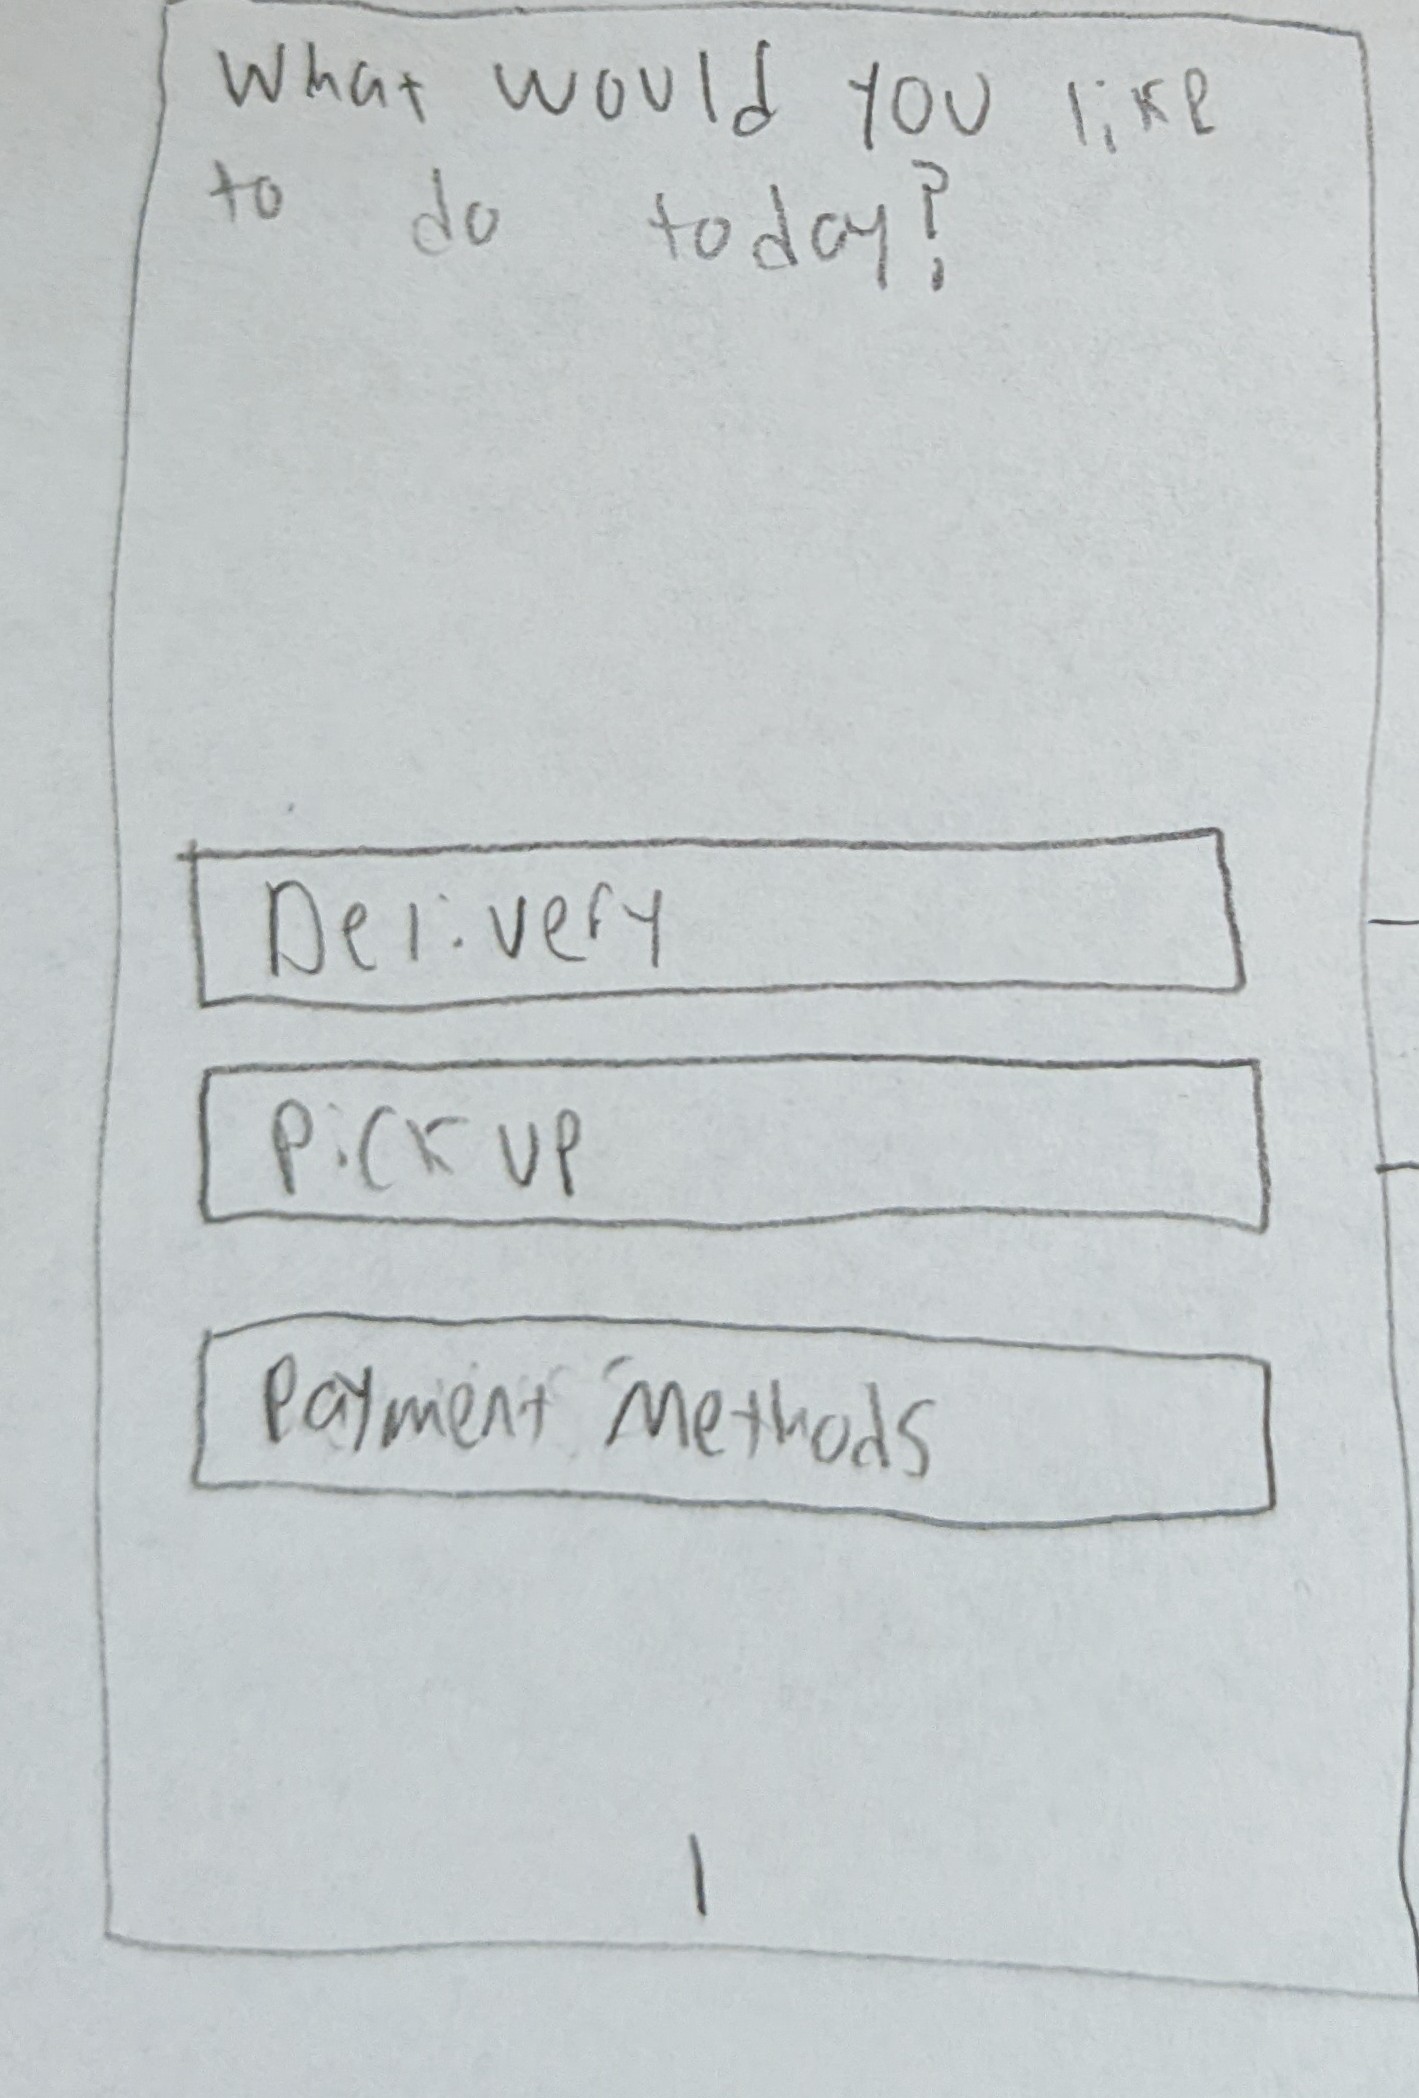 What would you like
to do today?
Delivery
Pick up
Payment Methods
1